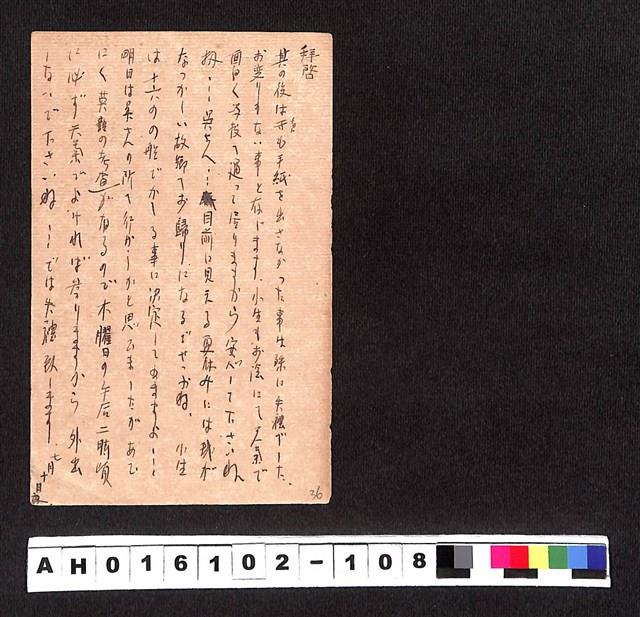 拝啓
其の後は一寸も手紙を出さなかった事は誠に失礼でした、
お変りもない事と存じます、小生もお陰にて元気で
面白く学校て通って居りますから安心して下さいね
扨…呉さん…目前に見える夏休みには我が
なつかしい故郷てお歸りになるでせうね。 小生
は十六日の船でかへる事に決定してゐますよ……
明日は呉さんの所て行かうかと思ひましたがあひ
にく英語の考査が有るので木曜日の午后二時頃
に必ず天気でよければ参りますから 外出
しないで下さいね……では失禮致します
七月
十日夜
36
AH016102-108